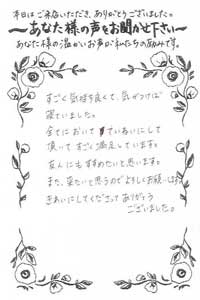 本日はご来店いただき、ありがとうございました。
～あなた様の声をお聞かせ下さい～
あなた様の温かいお声が私たちの励みです。
すごく気持ち良くて、気がつけば
寝ていました。
全てにおいてていねいにして
頂いてすごく満足しています。
友人にもすすめたいと思います。
また、来たいと思うのでよろしくお願いします。
きれいにしてくださってありがとう
ございました。